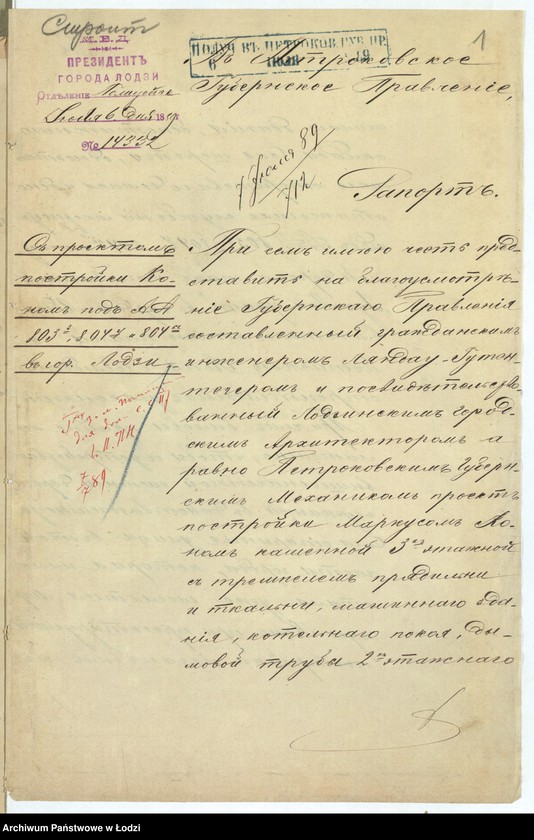 Строит
М.В.Д.
ПРЕЗИДЕНТЪ
ГОРОДА ЛОДЗИ
Отдѣленіе
Іюля 6 дня 1889
№ 14352
ПОЛУЧ. ВЪ ПЕТРОКОВ. ГУБ. ПР.
1
Въ Петроковское
Губернское Правленіе,
7 Іюля 89
712
Рапортъ.
Съ проектомъ
постройки Ко-
номъ подъ №№
803 ᵃ, 804 ᶻ и 804 ᵃᵃ
въ гор. Лодзи
При семъ имѣю честь пред-
ставить на благоусмотрѣ-
ніе Губернскаго Правленія
составленный гражданскимъ
инженеромъ Ляндау-Гутен-
тегеромъ и посвидѣтельство-
ванный Лодзинскимъ Город-
скимъ Архитекторомъ а
равно Петроковскимъ Губерн-
скимъ Механикомъ проектъ
постройки Маркусомъ Ко-
номъ каменной 3ˣъ этажной
съ тремпелемъ прядильни
и ткальни, машиннаго зда-
нія, котельнаго покоя, ды-
мовой трубы 2ˣъ этажнаго
7/7 89
Archiwum Państwowe w Łodzi